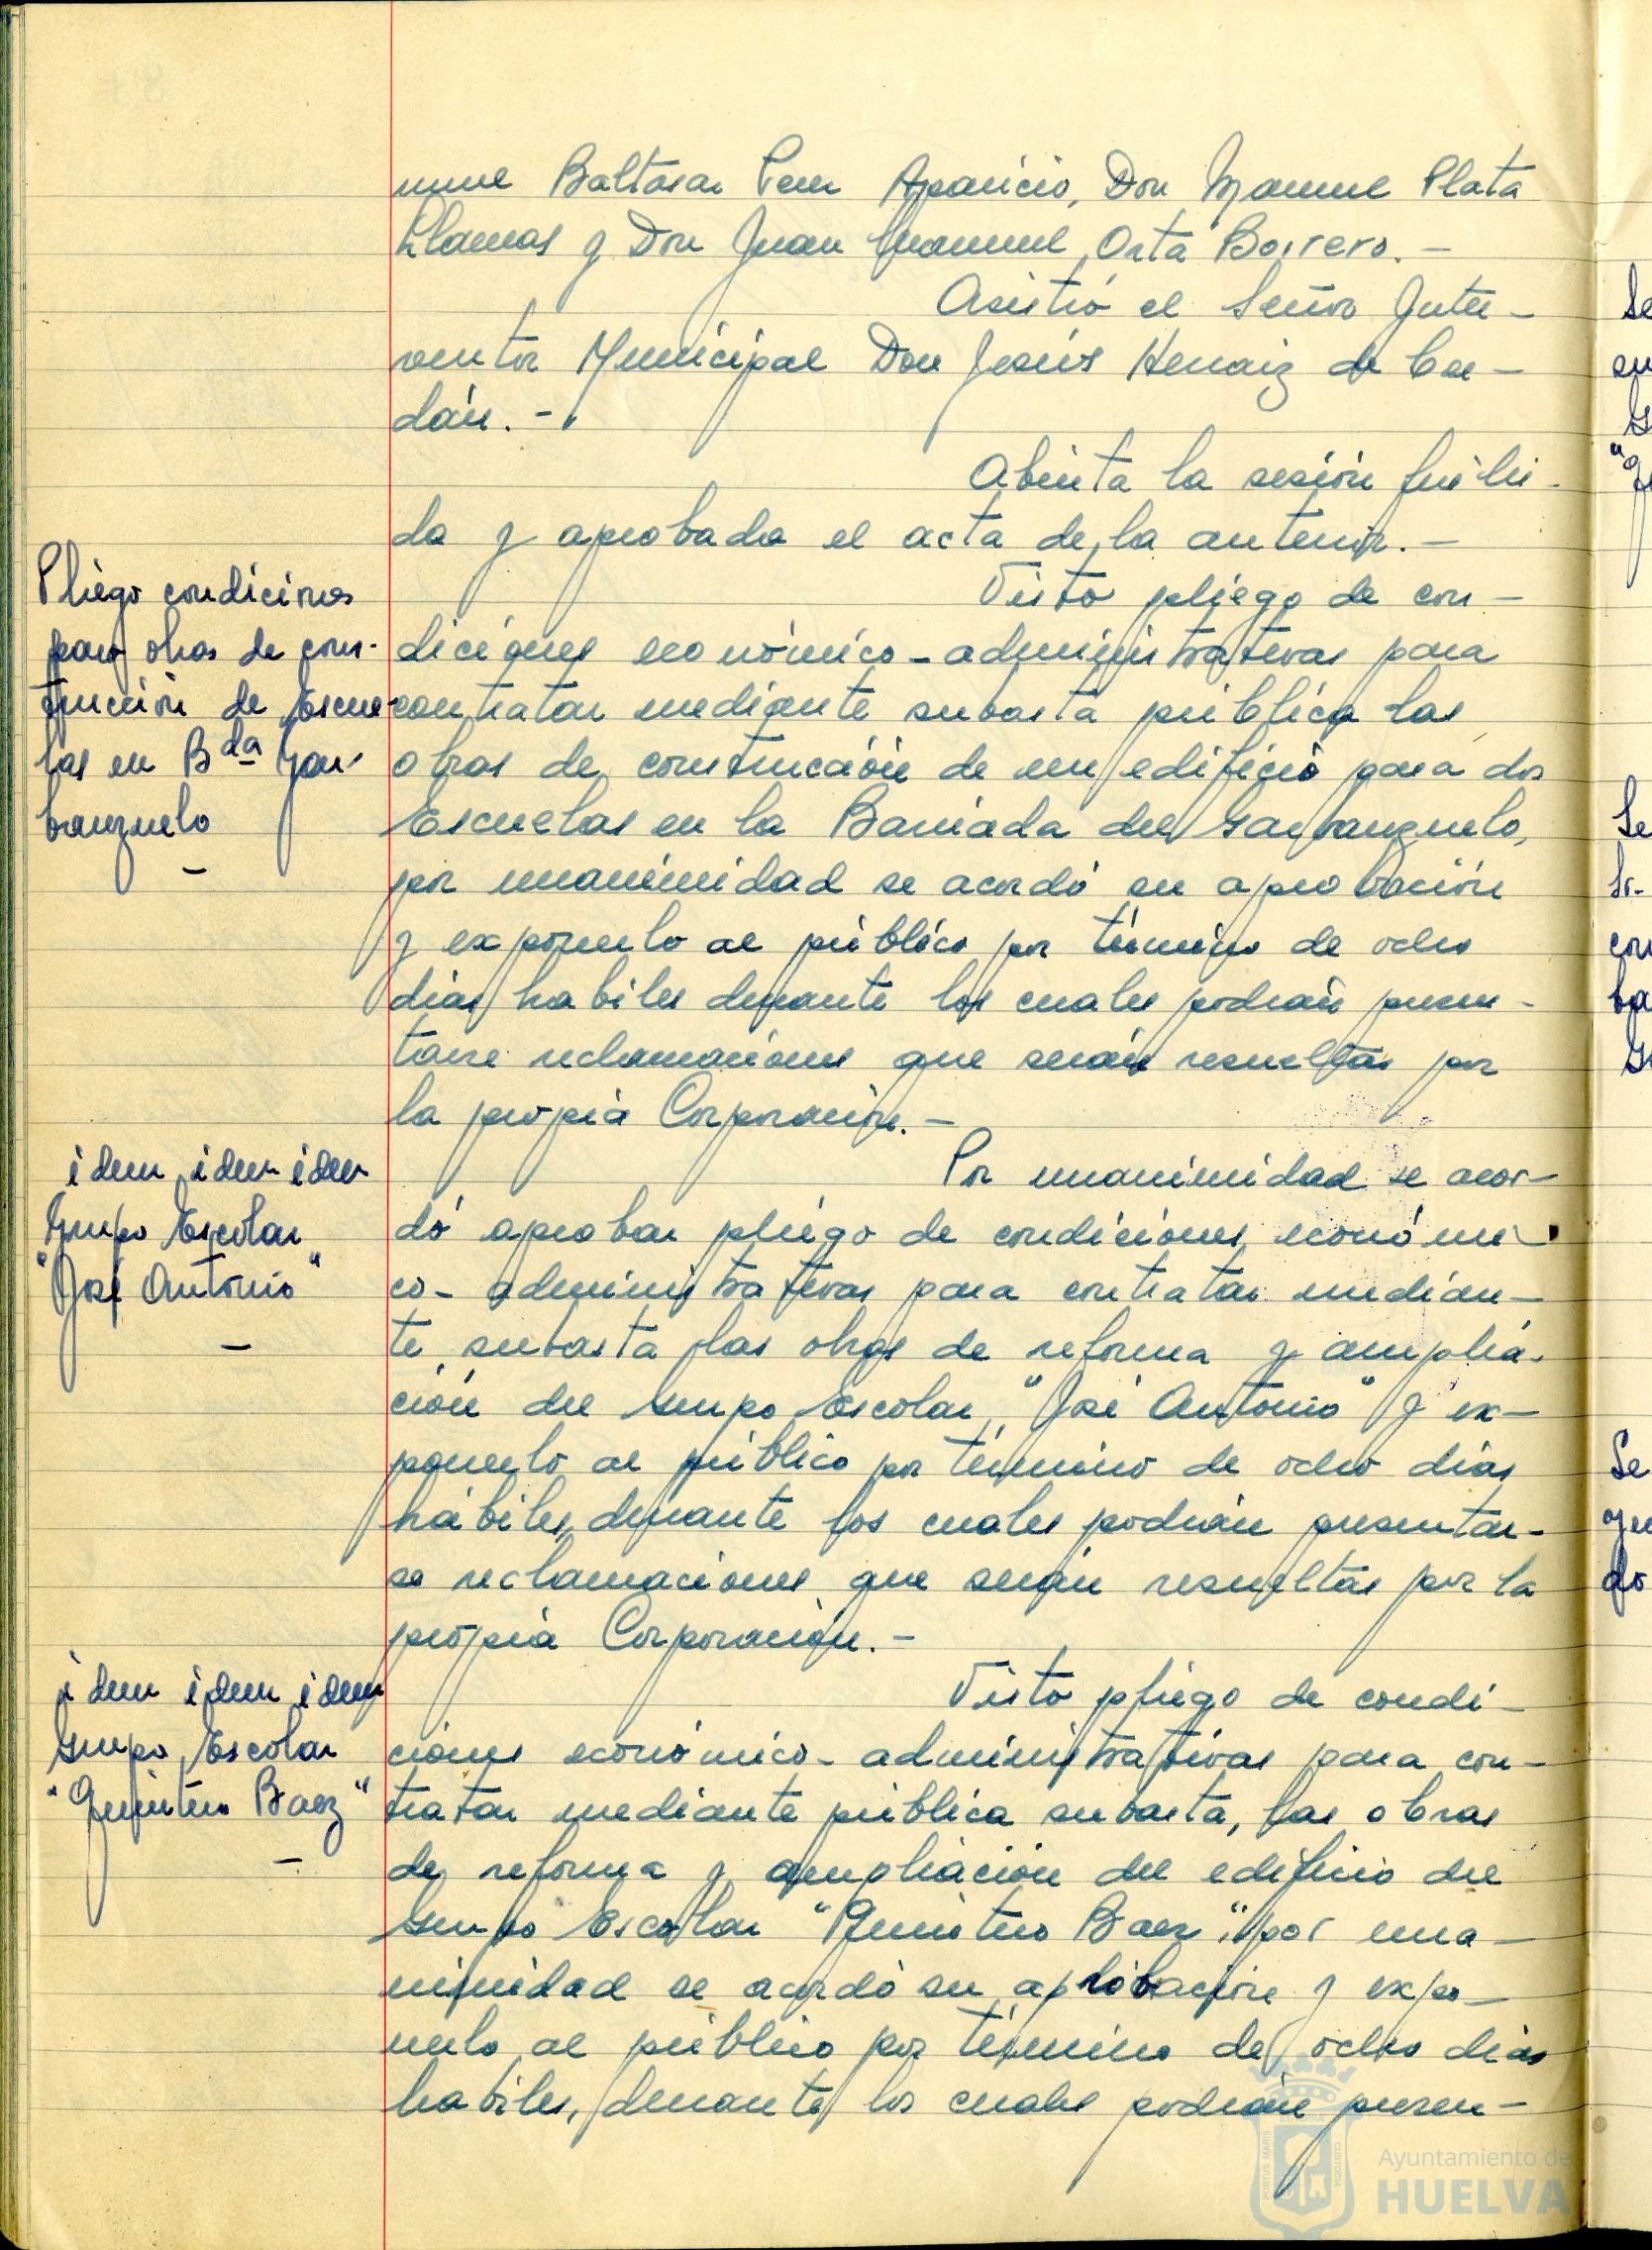 nuel Baltasar Pérez Aparicio, Don Manuel Plata
Llamas y Don Juan Manuel Orta Borrero.-
Asistió el Señor Inter-
ventor Municipal Don Jesús Hernaiz de
dán.-
Abierta la sesión fué lei-
da y aprobada el acta de la anterior.-
Pliego condiciones
para obras de cons-
trucción de Escue-
las en Bda Gar-
banzuelo
Visto pliego de con-
diciones económico-administrativas para
contratar mediante subasta pública las
obras de construcción de un edificio para dos
Escuelas en la Barriada del Garbanzuelo,
por unanimidad se acordó su aprobación
y exponerlo al público por término de ocho
días habiles durante los cuales podrán presen-
tarse reclamaciones que serán resueltas por
la propia Corporación.-
idem idem idem
Grupo Escolar
"José Antonio"
Por unanimidad se acor-
dó aprobar pliego de condiciones económi-
co-administrativas para contratar median-
te subasta las obras de reforma y amplia-
ción del Grupo Escolar "José Antonio" y ex-
ponerlo al público por término de ocho días
hábiles, durante los cuales podrán presentar-
se reclamaciones que serán resueltas por la
propia Corporación.-
idem idem idem
Grupo Escolar
"Quintero Baez"
Visto pliego de condi-
ciones económico-administrativas para con-
tratar mediante pública subasta, las obras
de reforma y ampliación del edificio del
Grupo Escolar "Quintero Baez", por una-
nimidad se acordó su aprobación y expo-
nerlo al público por término de ocho días
habiles, durante los cuales podrán presen-
Ayuntamiento de
HUELVA